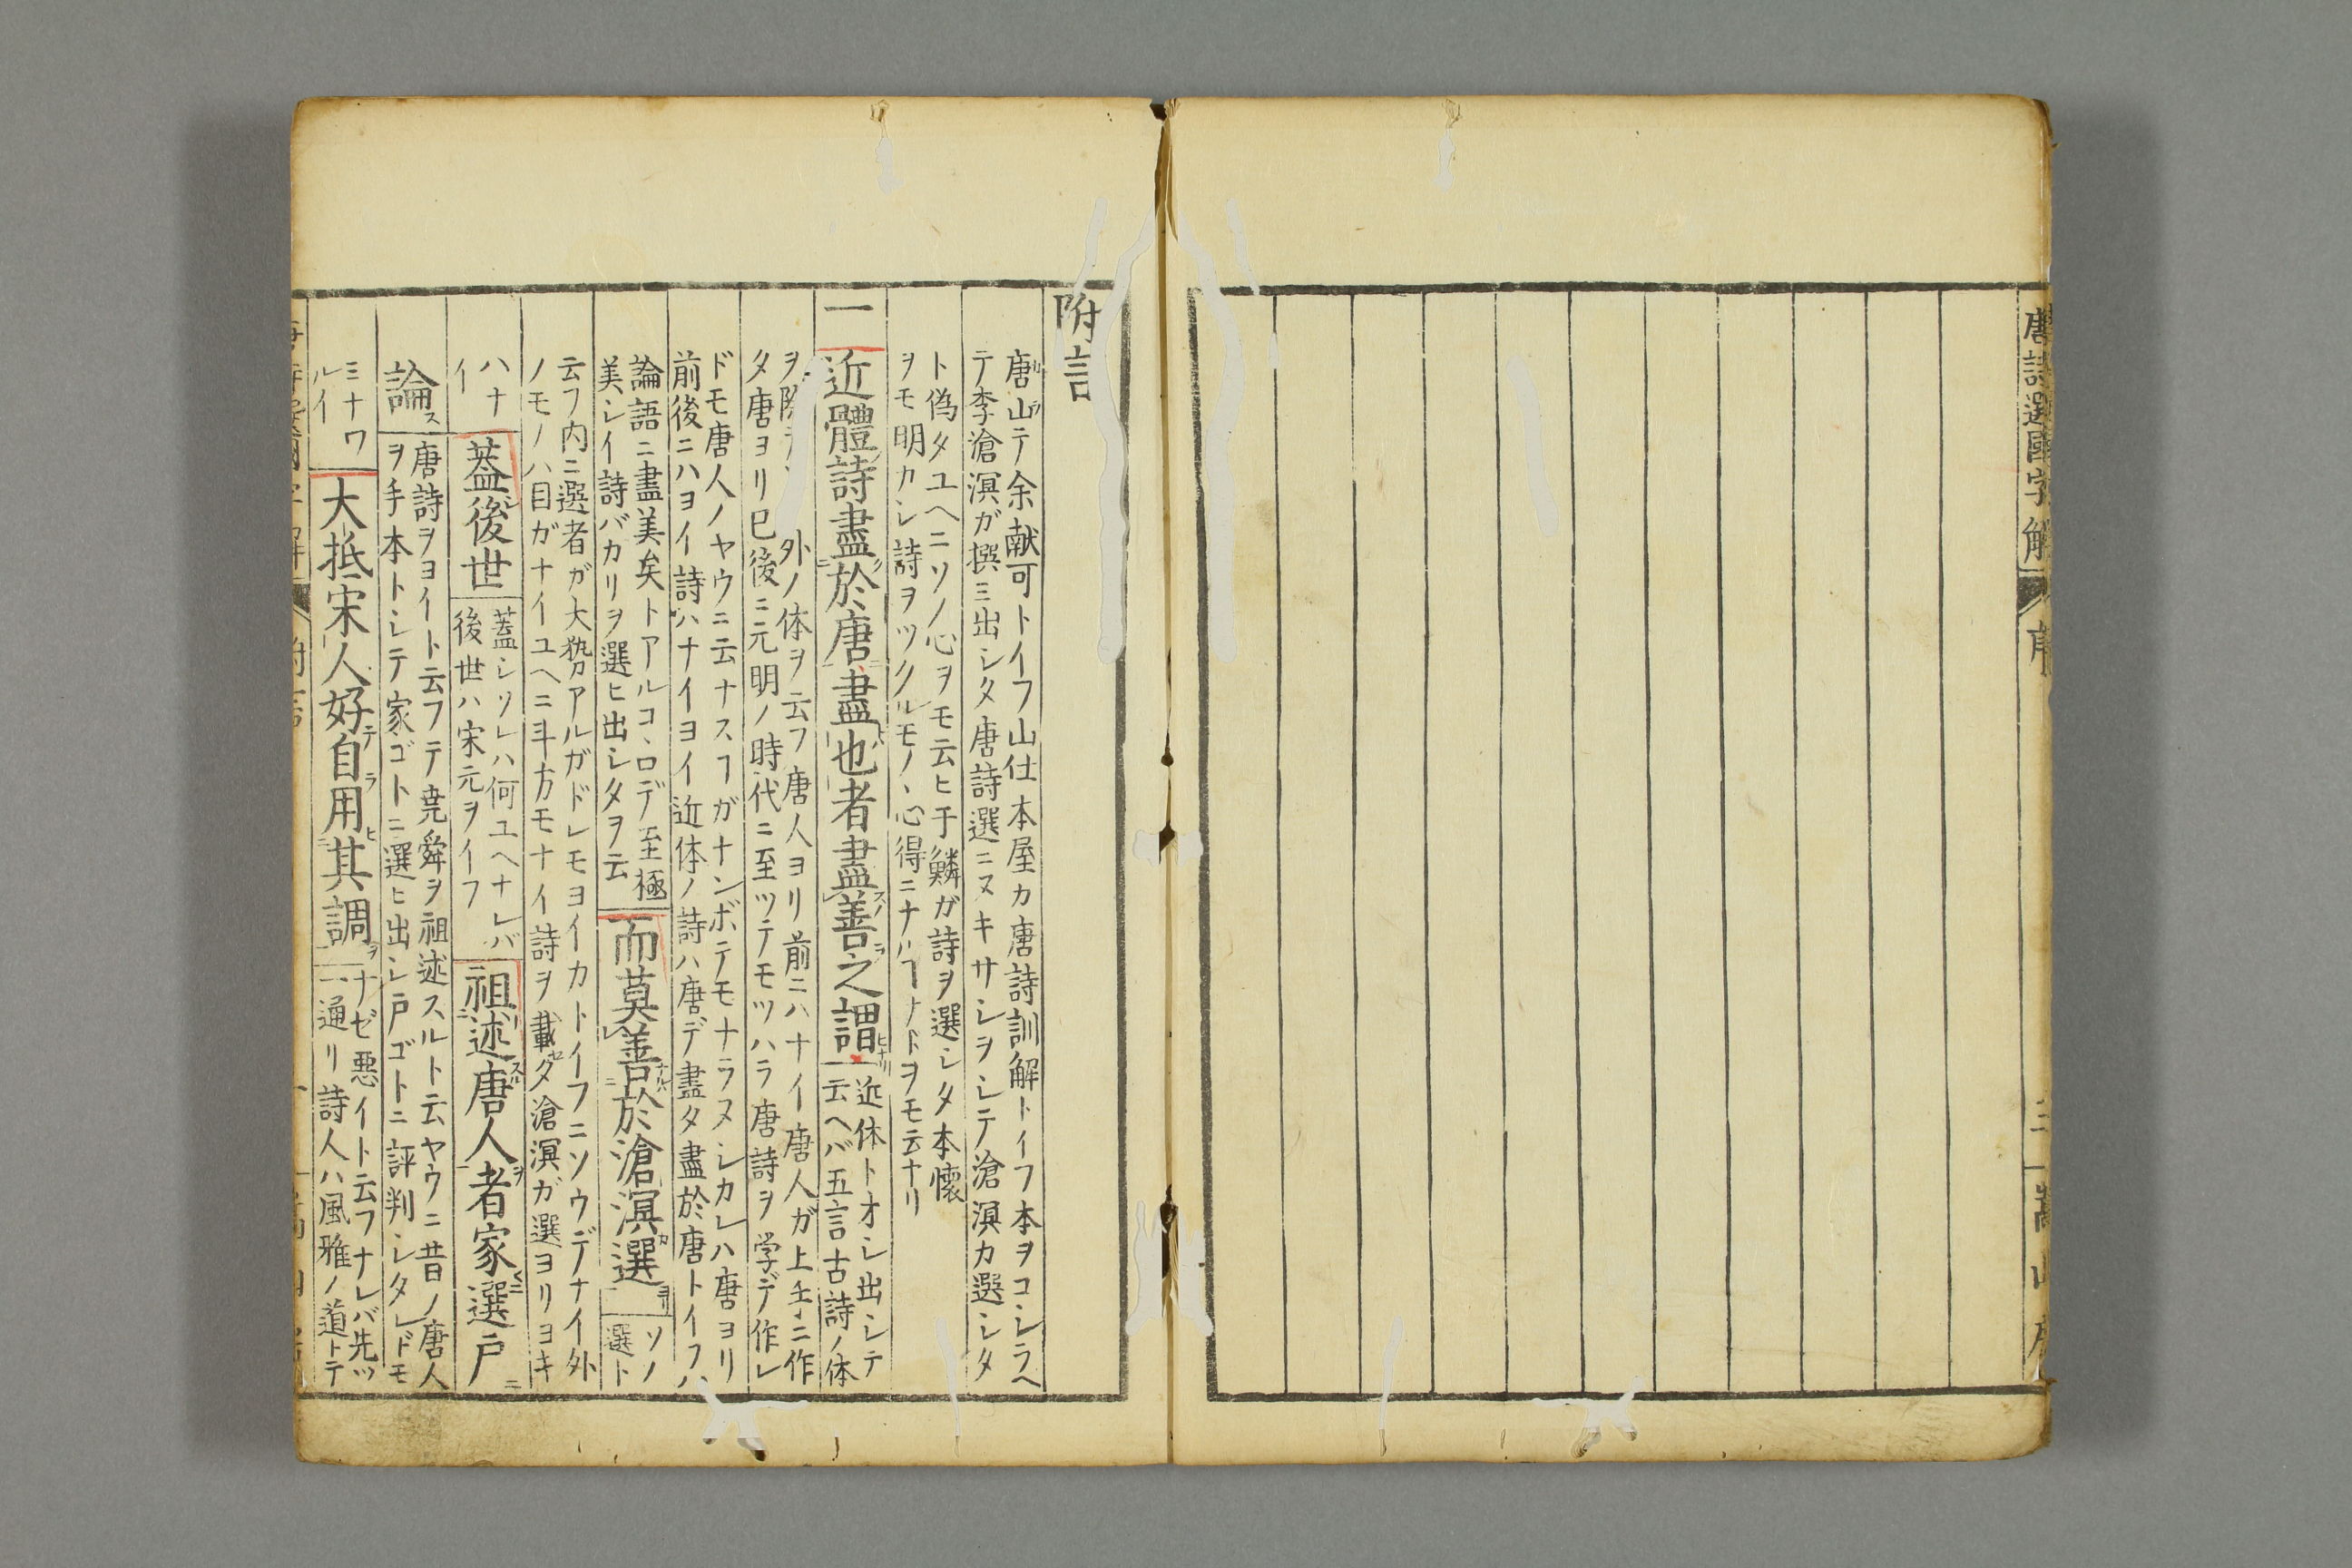 唐詩選國字解
序
三
嵩山房
附言
唐山テ余献可トイフ山仕本屋カ唐詩訓解トイフ本ヲコシラヘ
テ李滄溟ガ撰ミ出シタ唐詩選ニヌキサシヲシテ滄溟カ選シタ
ト偽タユヘニソノ心ヲモ云ヒ于鱗ガ詩ヲ選シタ本懐
ヲモ明カシ詩ヲツクルモノヽ心得ニナルヿナドヲモ云ナリ
一近體詩盡於唐盡也者盡善之謂
近体トオシ出シテ
云ヘバ五言古詩ノ体
ヲ 外ノ体ヲ云フ唐人ヨリ前ニハナイ唐人ガ上手ニ作
タ唐ヨリ已後ニ元明ノ時代ニ至ツテモツハラ唐詩ヲ学デ作レ
ドモ唐人ノヤウニ云ナスヿガナンボテモナラヌシカレハ唐ヨリ
前後ニハヨイ詩ハナイヨイ近体ノ詩ハ唐デ盡タ盡於唐トイフハ
論語ニ盡美矣トアルコヽロデ至極
美シイ詩バカリヲ選ヒ出シタヲ云
而莫善於滄溟選
ソノ
選ト
云フ内ニ選者ガ大勢アルガドレモヨイカトイフニソウデナイ外
ノモノハ目ガナイユヘニ斗方モナイ詩ヲ載タ滄溟ガ選ヨリヨキ
ハナ
イ
葢後世
蓋シソレハ何ユヘナレバ
後世ハ宋元ヲイフ
祖述唐人者家選戸
論
唐詩ヲヨイト云フテ堯舜ヲ祖述スルト云ヤウニ昔ノ唐人
ヲ手本トシテ家ゴトニ選ヒ出シ戸ゴトニ評判シタレドモ
ミナワ
ルイ
大抵宋人好自用其調
ナゼ悪イト云フナレバ先ツ
一通リ詩人ハ風雅ノ道トテ